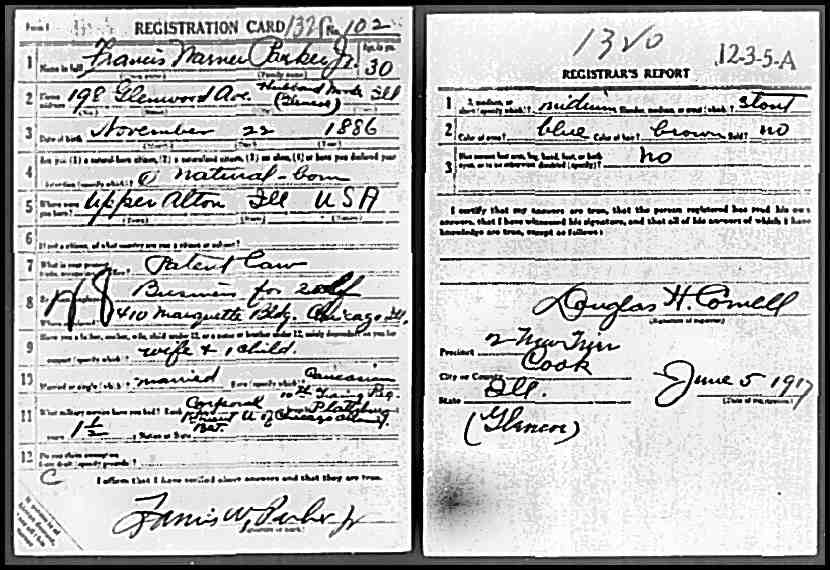 Form 1 REGISTRATION CARD 1320 No. 102
1 Name in full Francis Warner Parker Jr. Age, in yrs. 30
(Family name)
2 Home address 198 Glenwood Ave. Hubbard Woods Ill
(Glencoe)
3 Date of birth November 22 1886
(Month) (Day) (Year)
4 Are you (1) a natural-born citizen, (2) a naturalized citizen, (3) an alien, (4) or have you declared your
intention (specify which)? natural-born
5 Where were you born? Upper Alton Ill USA
(Town) (State) (Nation)
6 If not a citizen, of what country are you a citizen or subject?
7 What is your present trade, occupation, or office? Patent Law
8 Business for self
410 Marquette Bldg. Chicago Ill.
9 Have you a father, mother, wife, child under 12, or a sister or brother under 12, solely dependent on you for
support (specify which)? wife & 1 child.
10 Married or single (which)? married Race (specify which)? Caucasian
10th Training Reg.
11 What military service have you had? Rank Corporal Plattsburg
U of Chicago
years 1 1/2 Nation or State
12 Do you claim exemption from draft (specify grounds)?
C I affirm that I have verified above answers and that they are true.
Francis W. Parker Jr
(Signature or mark)
1320 12-3-5-A
REGISTRAR'S REPORT
1 Tall, medium, or short (specify which)? medium Slender, medium, or stout (which)? stout
2 Color of eyes? blue Color of hair? brown Bald? no
3 Has person lost arm, leg, hand, foot, or both eyes, or is he otherwise disabled (specify)? no
I certify that my answers are true, that the person registered has read his own
answers, that I have witnessed his signature, and that all of his answers of which I have
knowledge are true, except as follows:
Douglas H. Cornell
(Signature of registrar)
Precinct 2 New Trier
City or County Cook
State Ill. June 5 1917
(Date of registration)
(Glencoe)